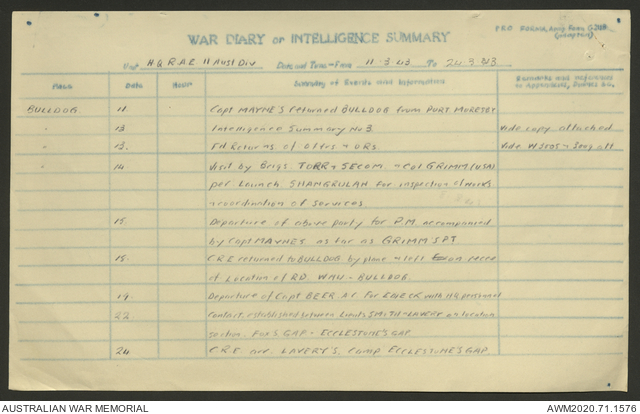 PRO FORMA, Army Form C 2118
WAR DIARY or INTELLIGENCE SUMMARY
Unit H.Q. R.A.E. 11 Aust Div Date and Time - From 11-3-43 To 24-3-43
PLACE Date Hour Summary of Events and Information Remarks and references to Appendices, Duties &c.
BULLDOG. 11 Capt MAYNE'S returned BULLDOG from PORT MORESBY
" 13 Intelligence Summary No 3. Vide copy attached
" 13. Fd. Returns of Offrs & ORs Vide
14 Visit by Brigs TORR & SECOM. & Col GRIMM (USA)
per launch SHANGRULAH for inspection of works
& coordination of services.
15. Departure of above party for P.M. accompanied
by Capt MAYNES as far as GRIMM'S PT
15. C.R.E returned to BULLDOG by plane & left on recce
of location of RD. WAU - BULLDOG.
19. Departure of Capt BEER. A.C. for with HQ personnel
22 Contact established between Lieuts SMITH - LAVERY on location
section. FOX'S GAP - ECCLESTONE'S GAP.
24 C.R.E arr. LAVERY'S. Camp ECCLESTONE'S GAP
AUSTRALIAN WAR MEMORIAL AWM2020.71.1576